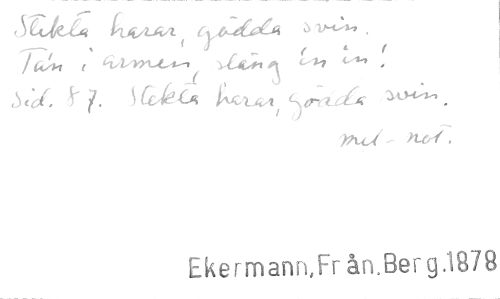 Stekta harar, gödda svin.
Ta'n i armen, släng in in!
Sid. 87. Stekta harar, gödda svin.
mel-not.
Ekermann,Från.Berg.1878